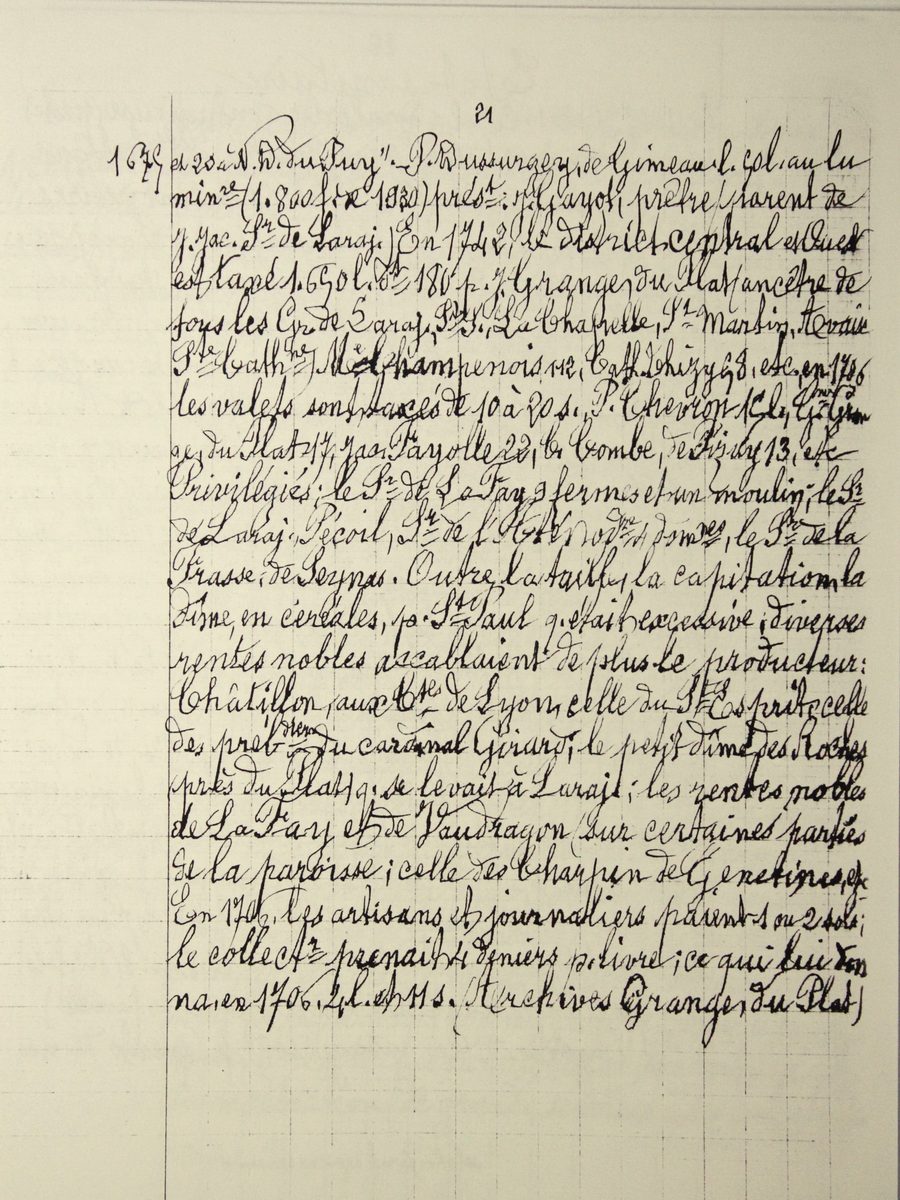 21
1675 et 20 à N. D. du Puy". P. Dussurgey, de Gimeau l. 50l. au lu
minre (1.800f. de 1930) prést: J. Gayot, prêtre (parent de
J. Jac. Sr de Laraj.) En 1742, le district central et Ouest
est taxé 1.650 l. St 180 p. J. Grange, du Plat (ancêtre de
tous les Gr. de Laraj., St S., La Chapelle, St Martin, Avaise
Ste Cathne) Mel Champenois 112, Cath. Thizy 68, etc. en 1706
les valets sont taxés de 10 à 20 s., P. Chevron
ge, du Plat 17, Jac. Fayolle 22, C. Combe, de Pizay 13, etc
Privilégiés: le Sr de La Fay 3 fermes et un moulin; le Sr
de Laraj., Pécoil, Sr de l' le Sr de la
Frasse, de Seynas. Outre la taille, la capitation, la
Dîme, en céréales, p. St Paul q. était excessive, diverses
rentes nobles accablaient de plus le producteur:
Châtillon, aux Ctes de Lyon, celle du St Esprit, celle
des prébdiers du cardinal Girard; le petit dîme des Roches
près du Plat, q. se levait à Laraj.; les rentes nobles
de La Fay et de Vaudragon (sur certaines parties
de la paroisse; celle des Charpin de Genetines, etc
En 1706, les artisans et journaliers paient 1 ou 2 sols;
le collectr prenait 4 deniers p. livre; ce qui lui don
na, en 1706, 2 l. et 11 s. (Archives Grange, du Plat)